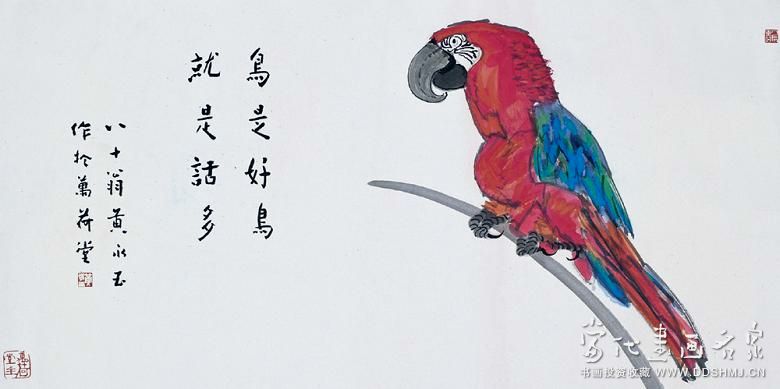 鳥是好鳥
就是話多
八十翁黄永玉
作於萬荷堂
当代書画名家
书画投资收藏 WWW.DDSHMJ.CN